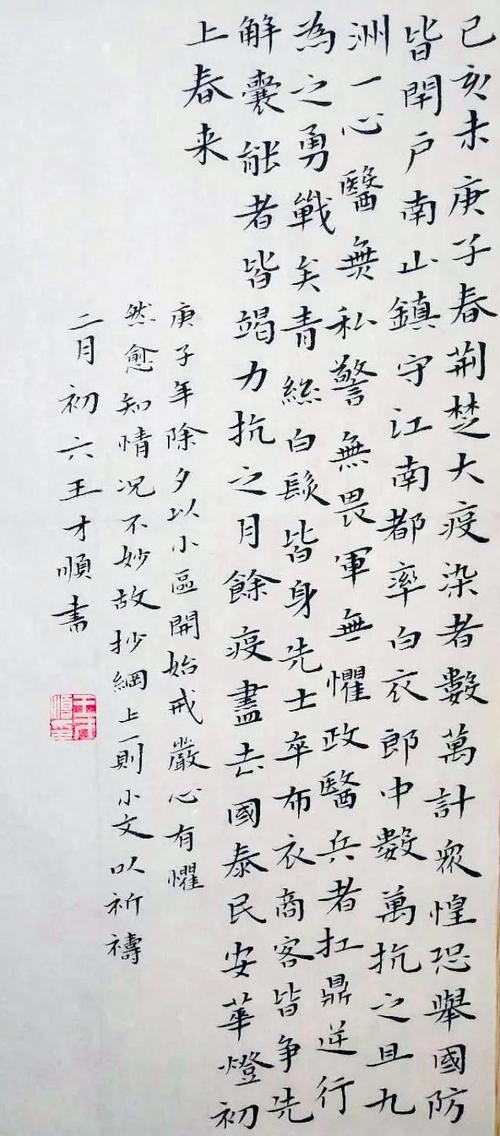 己亥末庚子春荆楚大疫染者數萬計眾惶恐舉國防
皆閉户南山鎮守江南都率白衣郎中數萬抗之且九
洲一心醫無私警無畏軍無懼政醫兵者扛鼎逆行
為之勇戰矣青絲白髮皆身先士卒布衣商客皆爭先
解囊能者皆竭力抗之月餘疫盡去國泰民安華燈初
上春来
庚子年除夕以小區開始戒嚴心有懼
然愈知情况不妙故抄網上一則小文以祈禱
二月初六王才順書